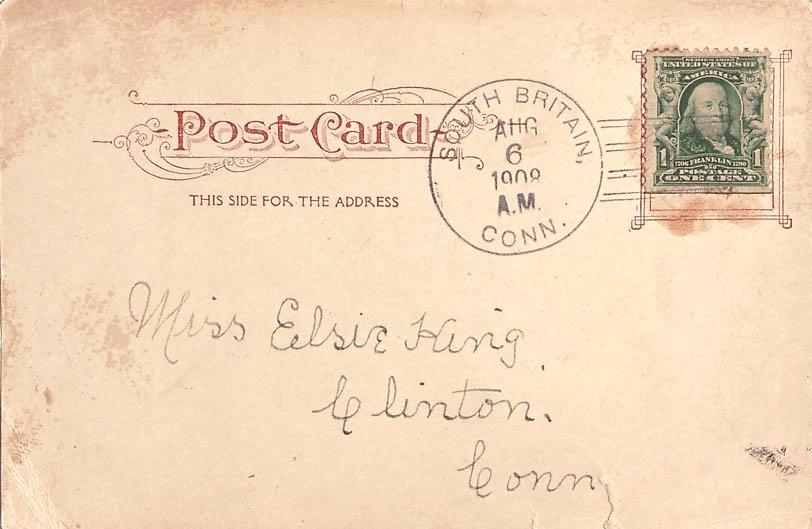 SERIES 1902
UNITED STATES OF
AMERICA
1 1706 FRANKLIN 1790 1
POSTAGE
ONE CENT
Post Card
THIS SIDE FOR THE ADDRESS
SOUTH BRITAIN,
AUG
6
1908
A.M.
CONN.
Miss Eelsie King
Clinton.
Conn